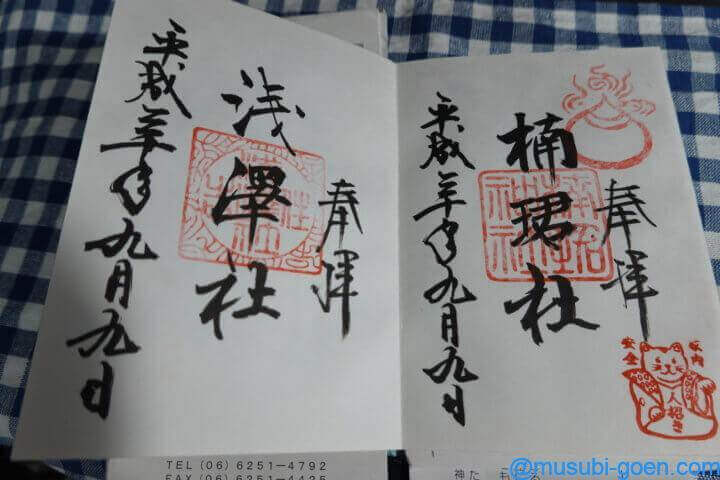 奉拝
楠珺社
平成三十年九月九日
家内
安全
人招き
奉拝
浅澤社
平成三十年九月九日
TEL (06) 6251-4792
@musubi-goen.com